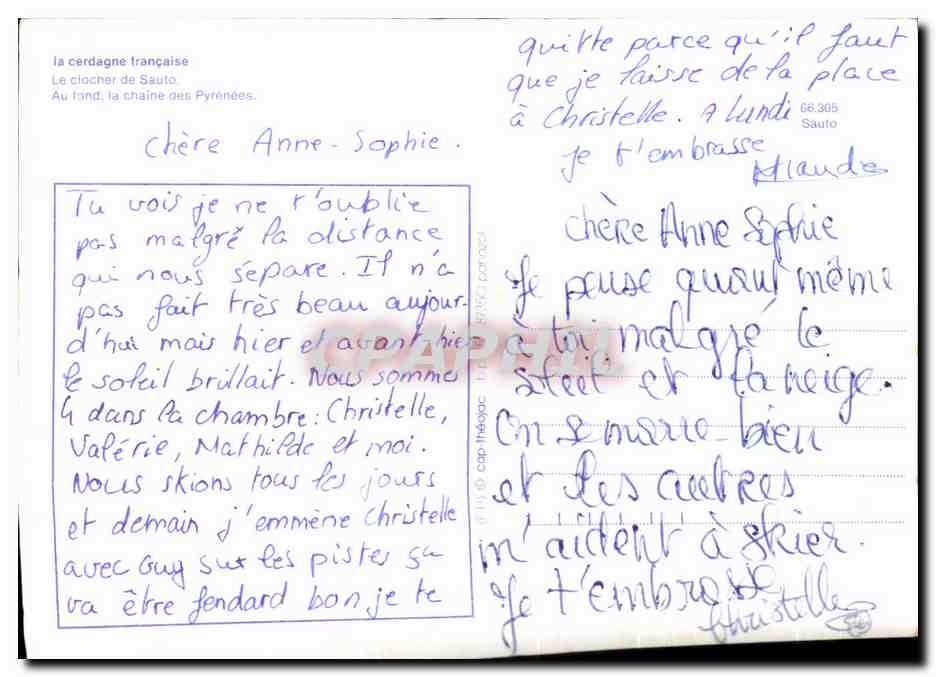 la cerdagne française
Le clocher de Sauto.
Au fond, la chaîne des Pyrénées.
chère Anne-Sophie.
Tu vois je ne t'oublie
pas malgré la distance
qui nous sépare. Il n'a
pas fait très beau aujour-
d'hui mais hier et avant-hier
le soleil brillait. Nous sommes
4 dans la chambre: Christelle,
Valérie, Mathilde et moi.
Nous skions tous les jours
et demain j'emmène Christelle
avec Guy sur les pistes ça
va être fendard bon je te
quitte parce qu'il faut
que je laisse de la place
à Christelle. A Lundi
je t'embrasse
66.305
Sauto
cap-théojac
87350 panazol
chère Anne Sophie
Je pense quant même
à toi malgré le
skit et la neige.
On se marre bien
et les autres
m'aident à skier.
Je t'embrasse
Christelle
CPAPHIL